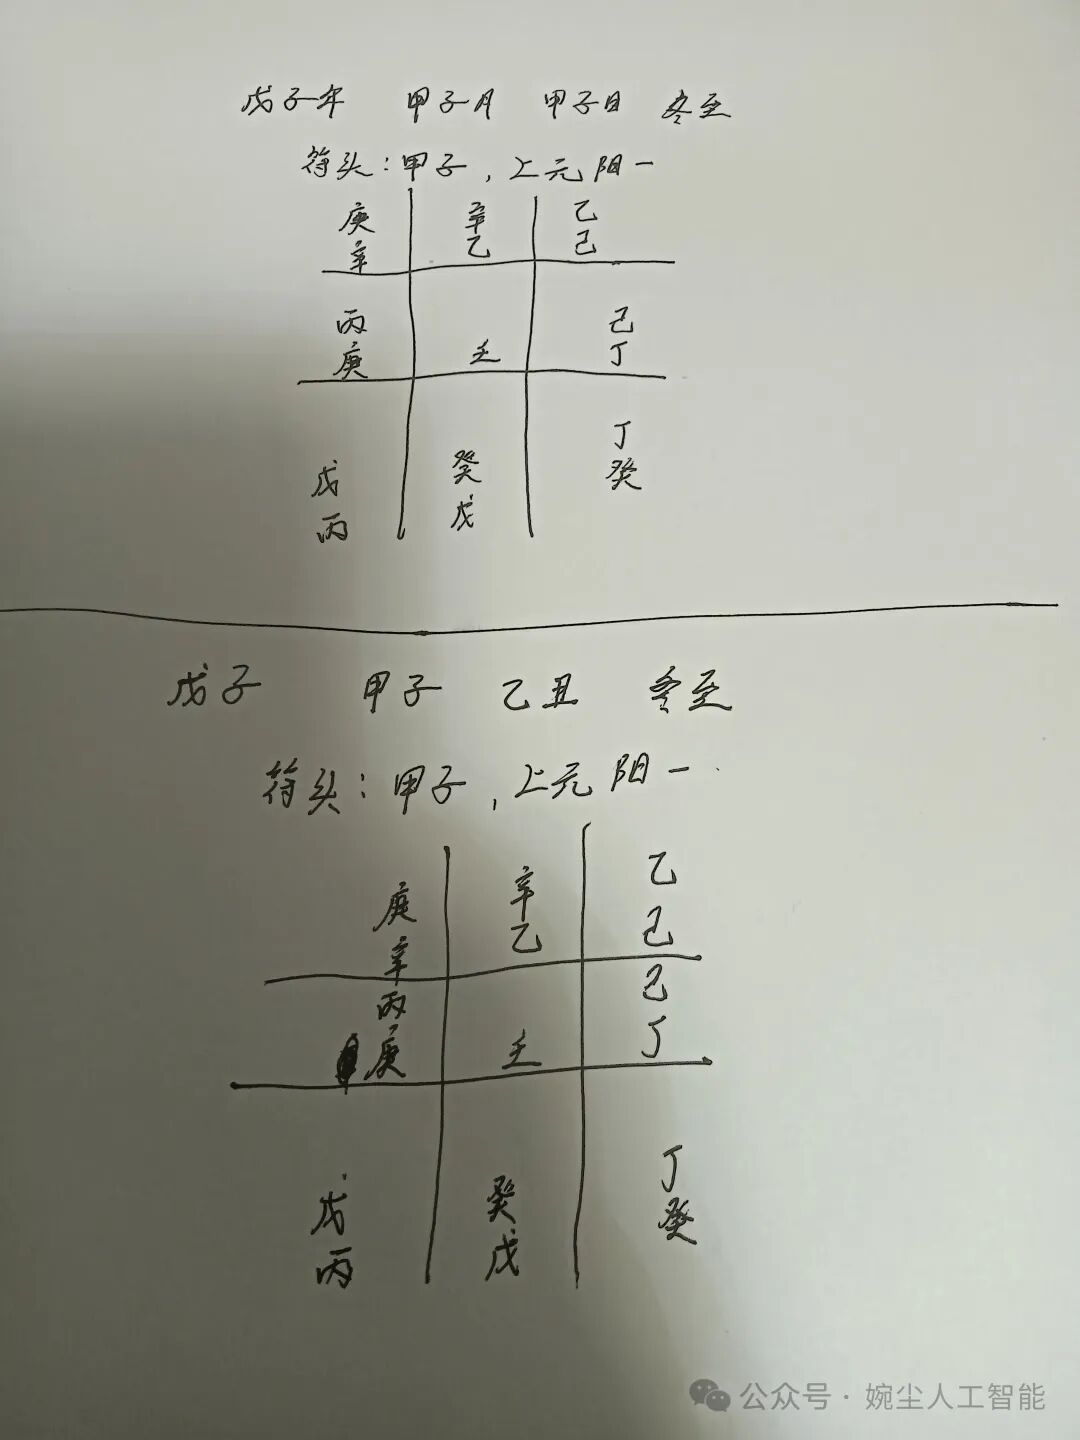 戊子年 甲子月 甲子日 冬至
符头:甲子,上元阳一
庚 辛 乙
辛 乙 己
丙 己
庚 壬 丁
丁
戊 癸 癸
丙 戊
戊子 甲子 乙丑 冬至
符头:甲子,上元阳一
庚 辛 乙
辛 乙 己
丙 己
庚 壬 丁
丁
戊 癸 癸
丙 戊
公众号·婉尘人工智能